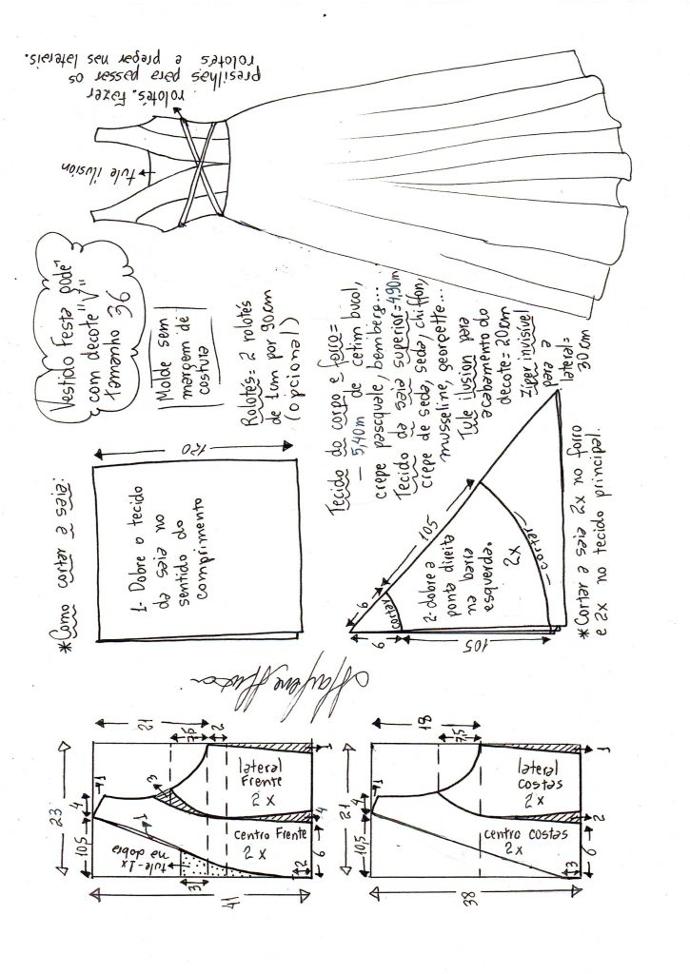 rolotés. Fazer
presilhas para passar os
rolotés e pregar nas laterais.
tule ilusion
Vestido Festa godê
com decote "V"
Tamanho 36
Molde sem
margem de
costura
Rolotés= 2 rolotés
de 1cm por 90cm
(opcional)
Tecido do corpo e forro=
- 5,40m de cetim bucol,
crepe pasquale, bemberg...
Tecido da saia superior=4,90m
crepe de seda, seda, chiffon,
musseline, georgette...
Tule ilusion para
acabamento do
decote= 20cm
Zíper invisível
para a
lateral=
30cm
*Como cortar a saia:
120
1- Dobre o tecido
da saia no
sentido do
comprimento
9
105
cortar
2- dobre a
ponta direita
na barra
esquerda.
2x
cortar
9
105
*Cortar a saia 2x no forro
e 2x no tecido principal.
23
10,5
4
1
21
7,5
2
3
1
tule-1x
na dobra
lateral
Frente
2x
centro Frente
2x
3
2
6
4
1
41
21
10,5
4
1
18
7,5
lateral
costas
2x
centro costas
2x
3
6
2
1
38